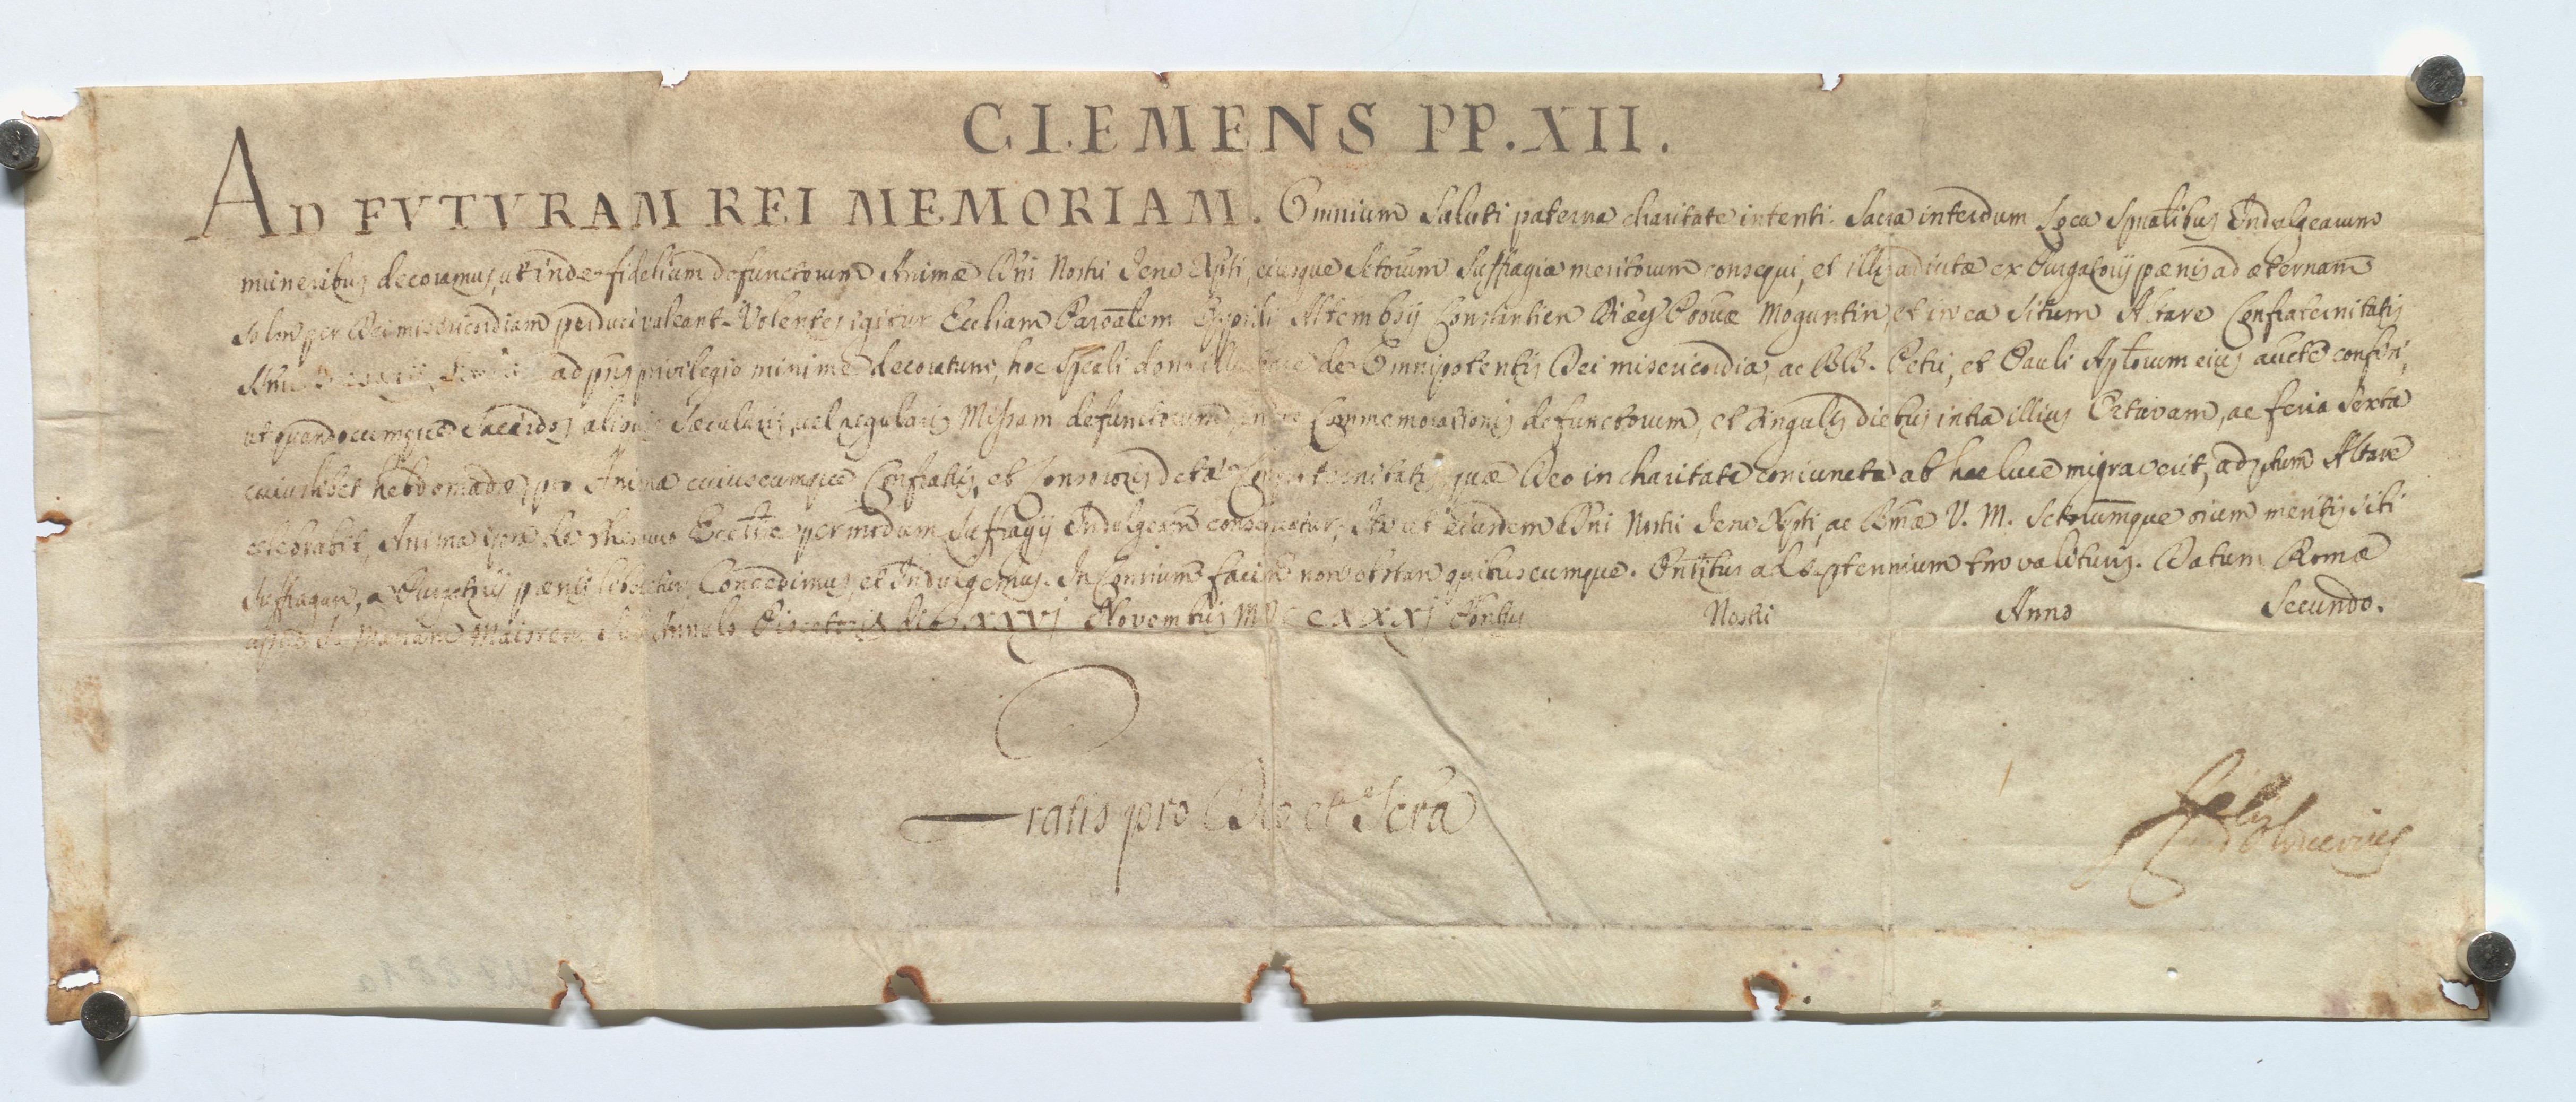 CLEMENS PP. XII.
AD FVTVRAM REI MEMORIAM. Omnium Saluti paterna charitate intenti Sacra interdum Loca Spualibus Indulgearum
muneribus decoramus, ut inde fidelium defunctorum Animæ Dni Nostri Jesu Xpti, eiusque Sctorum Suffragia meritorum consequi, et illis adiutæ ex Purgatorij pœnis ad æternam
Salem per Dei misericordiam perduci valeant. Volentes igitur Eccliam Paroalem Oppidi Constantien Diæcs Provæ Moguntin, et in ea Situm Altare Confraternitatis
ad pns privilegio minime decoratum, hoc Speali dono de Omnipotentis Dei misericordia, ac BB. Petri, et Pauli Aplorum eius aucte confisi,
ut quandocumque Sacerdos aliquis Secularis, vel regularis Missam defunctorum, in die Commemorationis defunctorum, et singulis diebus intra illius Octavam, ac feria Sexta
cuiuslibet hebdomadæ, pro Anima cuiuscumque Confratris, et Consororis dctæ Confraternitatis, quæ Deo in charitate coniuncta ab hac luce migraverit, ad pttum Altare
celebrabit, Anima ipsa de thesauro Ecctiæ per modum Suffragij Indulgeam consequatur, Ita ut eiusdem Dni Nostri Jesu Xpti, ac Bmæ V. M. Sctorumque oium meritis sibi
Suffragan, a Purgatorij pœnis liberetur, Concedimus, et Indulgemus. In Conrium facien non obstan quibuscumque. Pntibus ad Septennium tm valituris. Datum Romæ
apud S. Mariam Maiorem Sub Annulo Piscatoris die XXVI Novembris MDCCXXXI Pontus Nostri Anno Secundo.
ratis pro Deo et Scra